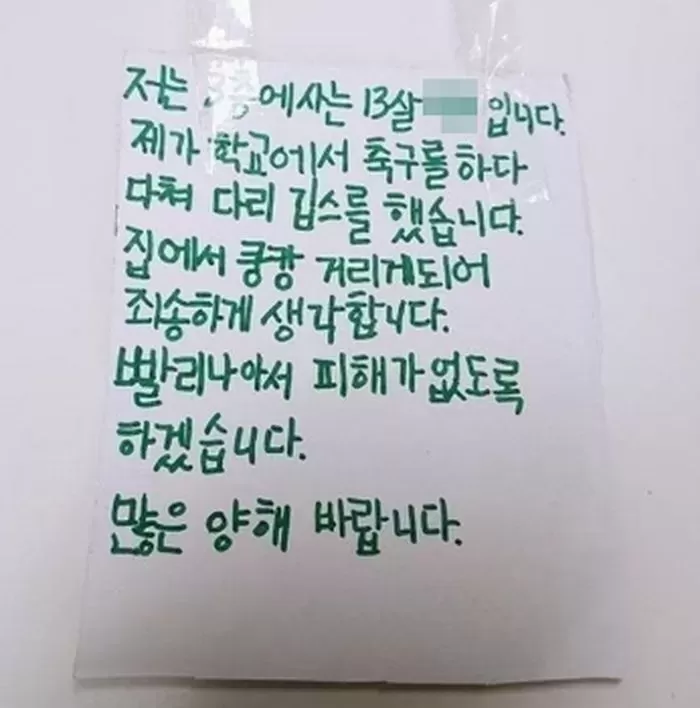 저는 3층에사는 13살 입니다.
제가 학교에서 축구를 하다
다쳐 다리 깁스를 했습니다.
집에서 쿵쾅 거리게되어
죄송하게 생각합니다.
빨리나아서 피해가없도록
하겠습니다.
많은 양해 바랍니다.